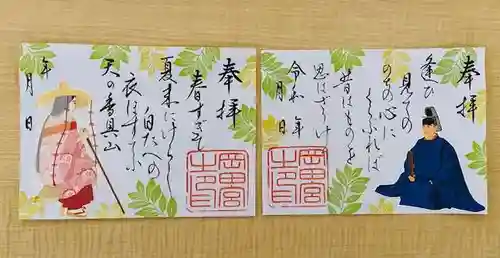 奉拝
逢ひ
見ての
のちの心に
くらぶれば
昔はものを
思はざりけ
令和 年
月 日
岡田宮
奉拝
春すぎて
夏来にけらし
白たへの
衣ほすてふ
天の香具山
年
月 日
岡田宮